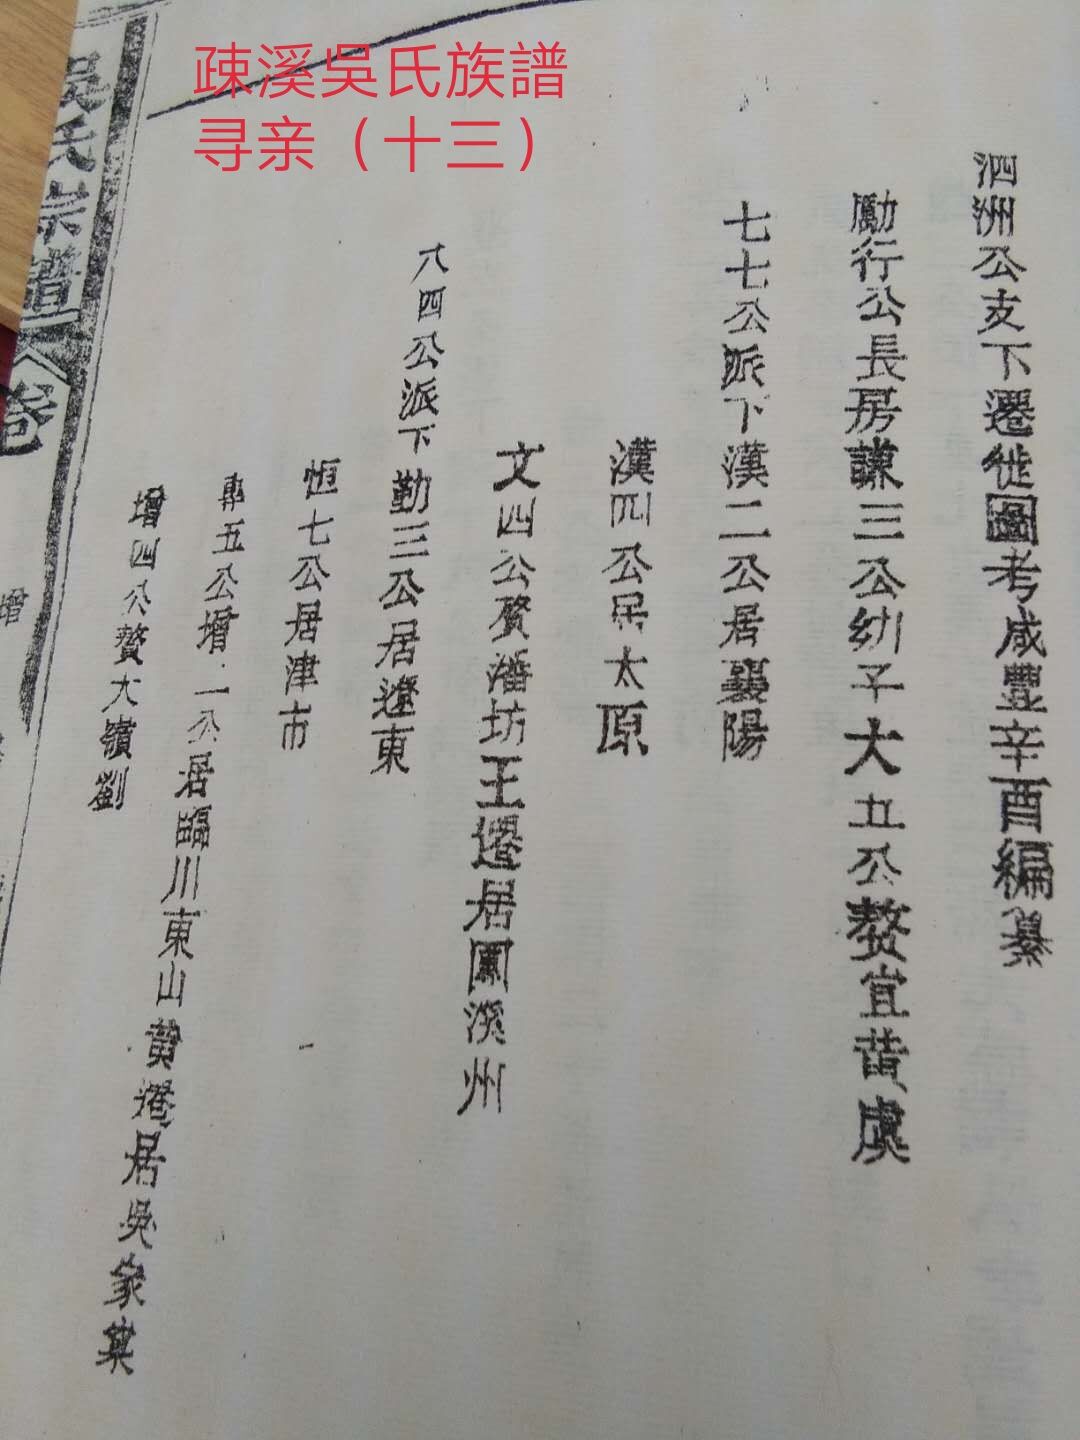 疎溪吳氏族譜
寻亲（十三）
泗洲公支下遷徙圖考咸豐辛酉編纂
勵行公長房謙三公幼子大五公贅宜黄虞
七七公派下漢二公居襄陽
漢四公居太原
文四公贅潘坊王遷居團溪州
八四公派下勤三公居遼東
恒七公居津市
五公增一公居臨川東山黄遷居吳家
增四公贅大嶺劉
吳氏宗譜
卷
增